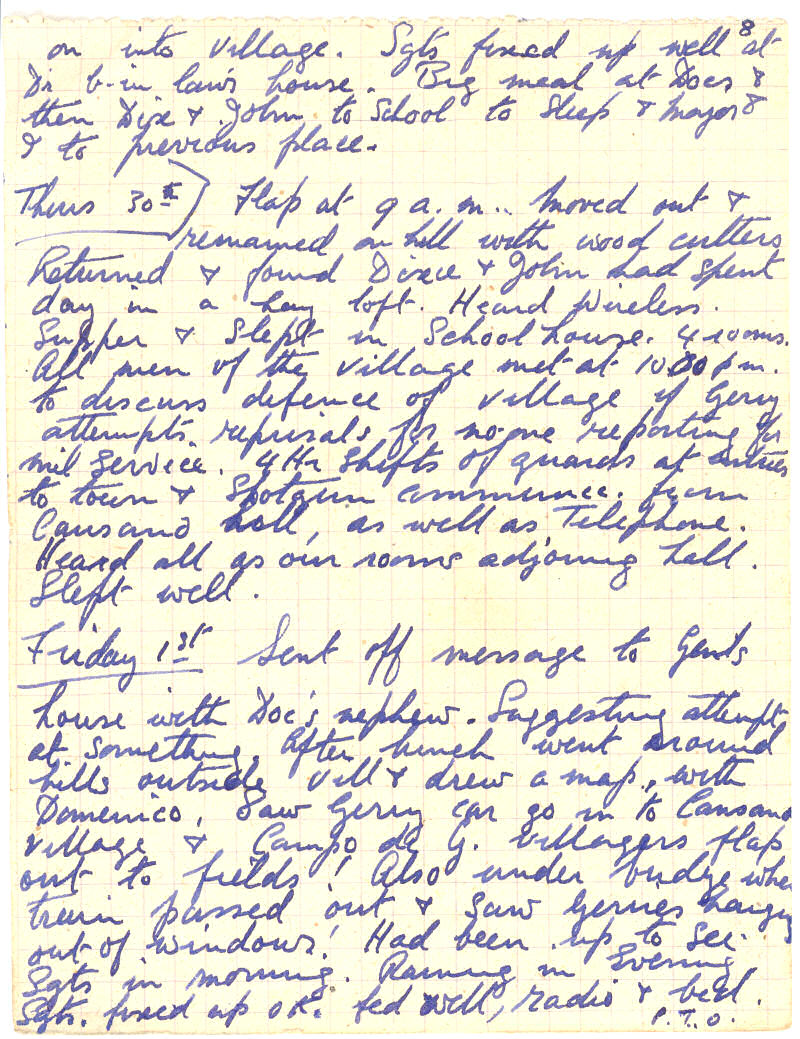 8
on into village. Sgts fixed up well at
Dr b-in laws house. Big meal at Docs &
then Dixe & John to School to sleep & Mayor &
I to previous place.
Thurs 30th Flap at 9 a.m.. Moved out &
remained on hill with wood cutters
Returned & found Dixie & John had spent
day in a hay loft. Heard Wireless.
Supper & Slept in School house. 4 rooms.
All men of the village met at 10.00 pm.
to discuss defence of village if Gerry
attempts reprisals for no-one reporting for
mil service. 4 Hr shifts of guards at entries
to town & Shotgun communic. from
Cansano hall, as well as Telephone.
Heard all as our rooms adjoining hall.
Slept well.
Friday 1st Sent off message to Gents
house with Doc's nephew. Suggesting attempt
at something. After lunch went around
hills outside vill & drew a map, with
Domenico. Saw Gerry car go in to Cansano
village & Campo de G. villagers flap
out to fields! Also under bridge when
train passed out & saw Gerries hanging
out of windows! Had been up to see
Sgts in morning. Raining in Evening
Sgts. fixed up OK. fed well, radio & bed.
P.T.O.